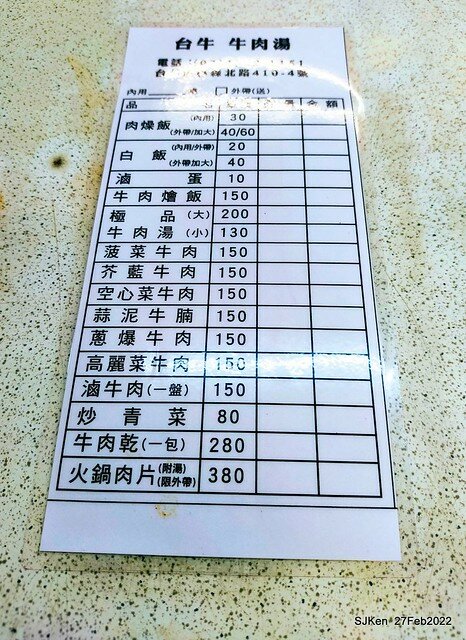 台牛 牛肉湯
電話
北路410-4號
內用 □外帶(送)
品 名 金額
肉燥飯 (內用) 30
(外帶/加大) 40/60
白飯 (內用/外帶) 20
(外帶加大) 40
滷蛋 10
牛肉燴飯 150
極品 (大) 200
牛肉湯 (小) 130
菠菜牛肉 150
芥藍牛肉 150
空心菜牛肉 150
蒜泥牛腩 150
蔥爆牛肉 150
高麗菜牛肉 150
滷牛肉(一盤) 150
炒青菜 80
牛肉乾(一包) 280
火鍋肉片(附湯)(限外帶) 380
SJKen 27Feb2022